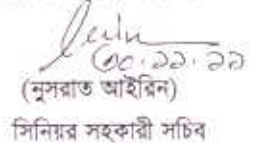 ৩০.১১.১১
(নুসরাত আইরিন)
সিনিয়র সহকারী সচিব